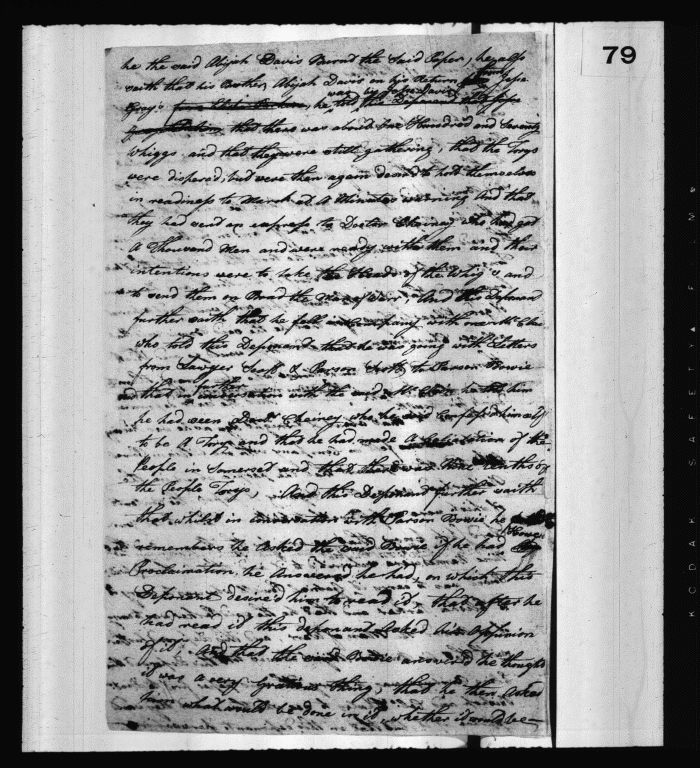 79
he the said Abijah Davis Burnt the said Paper, he also
saith that his Brother Abijah Davis on his Return from Jesse
Gray's he told this Deponant
that there was about five Hundred and Seventy
Whiggs and that they were still gathering, that the Torys
were dispersd, but were then again desired to hold themselves
in readiness to March at A Minutes warning And that
they had sent an express to Doctor Cheiney who had got
A Thousand Men and were ready with them and their
intentions were to take the Heads of the Whig's and
to send them on Board the Man of Warr, And this Deponant
further saith that he fell in Company with
who told this Deponant that he was going with Letters
from Lawyer Scott & Parson Scott to Parson Bowie
and that in further conversation with the said he told him
he had seen Doctr. Cheiney who he said Confessed himself
to be A Tory and that he had made A Calculation of the
People in Somerset and that there was Three Tenths of
the People Torys, And this Deponant further saith
that whilst in conversation with Parson Bowie he
remembers he Asked the said Bowie if he had Howe's
Proclamation, he Answered he had, on which this
Deponant desired him to read it, that after he
had read it this deponant Asked his Oppinion
of it, And that the said Bowie answered he thought
it was a very Gracious thing, that he then Asked
him what would be done in it, whether it would be
KODAK SAFETY FILM